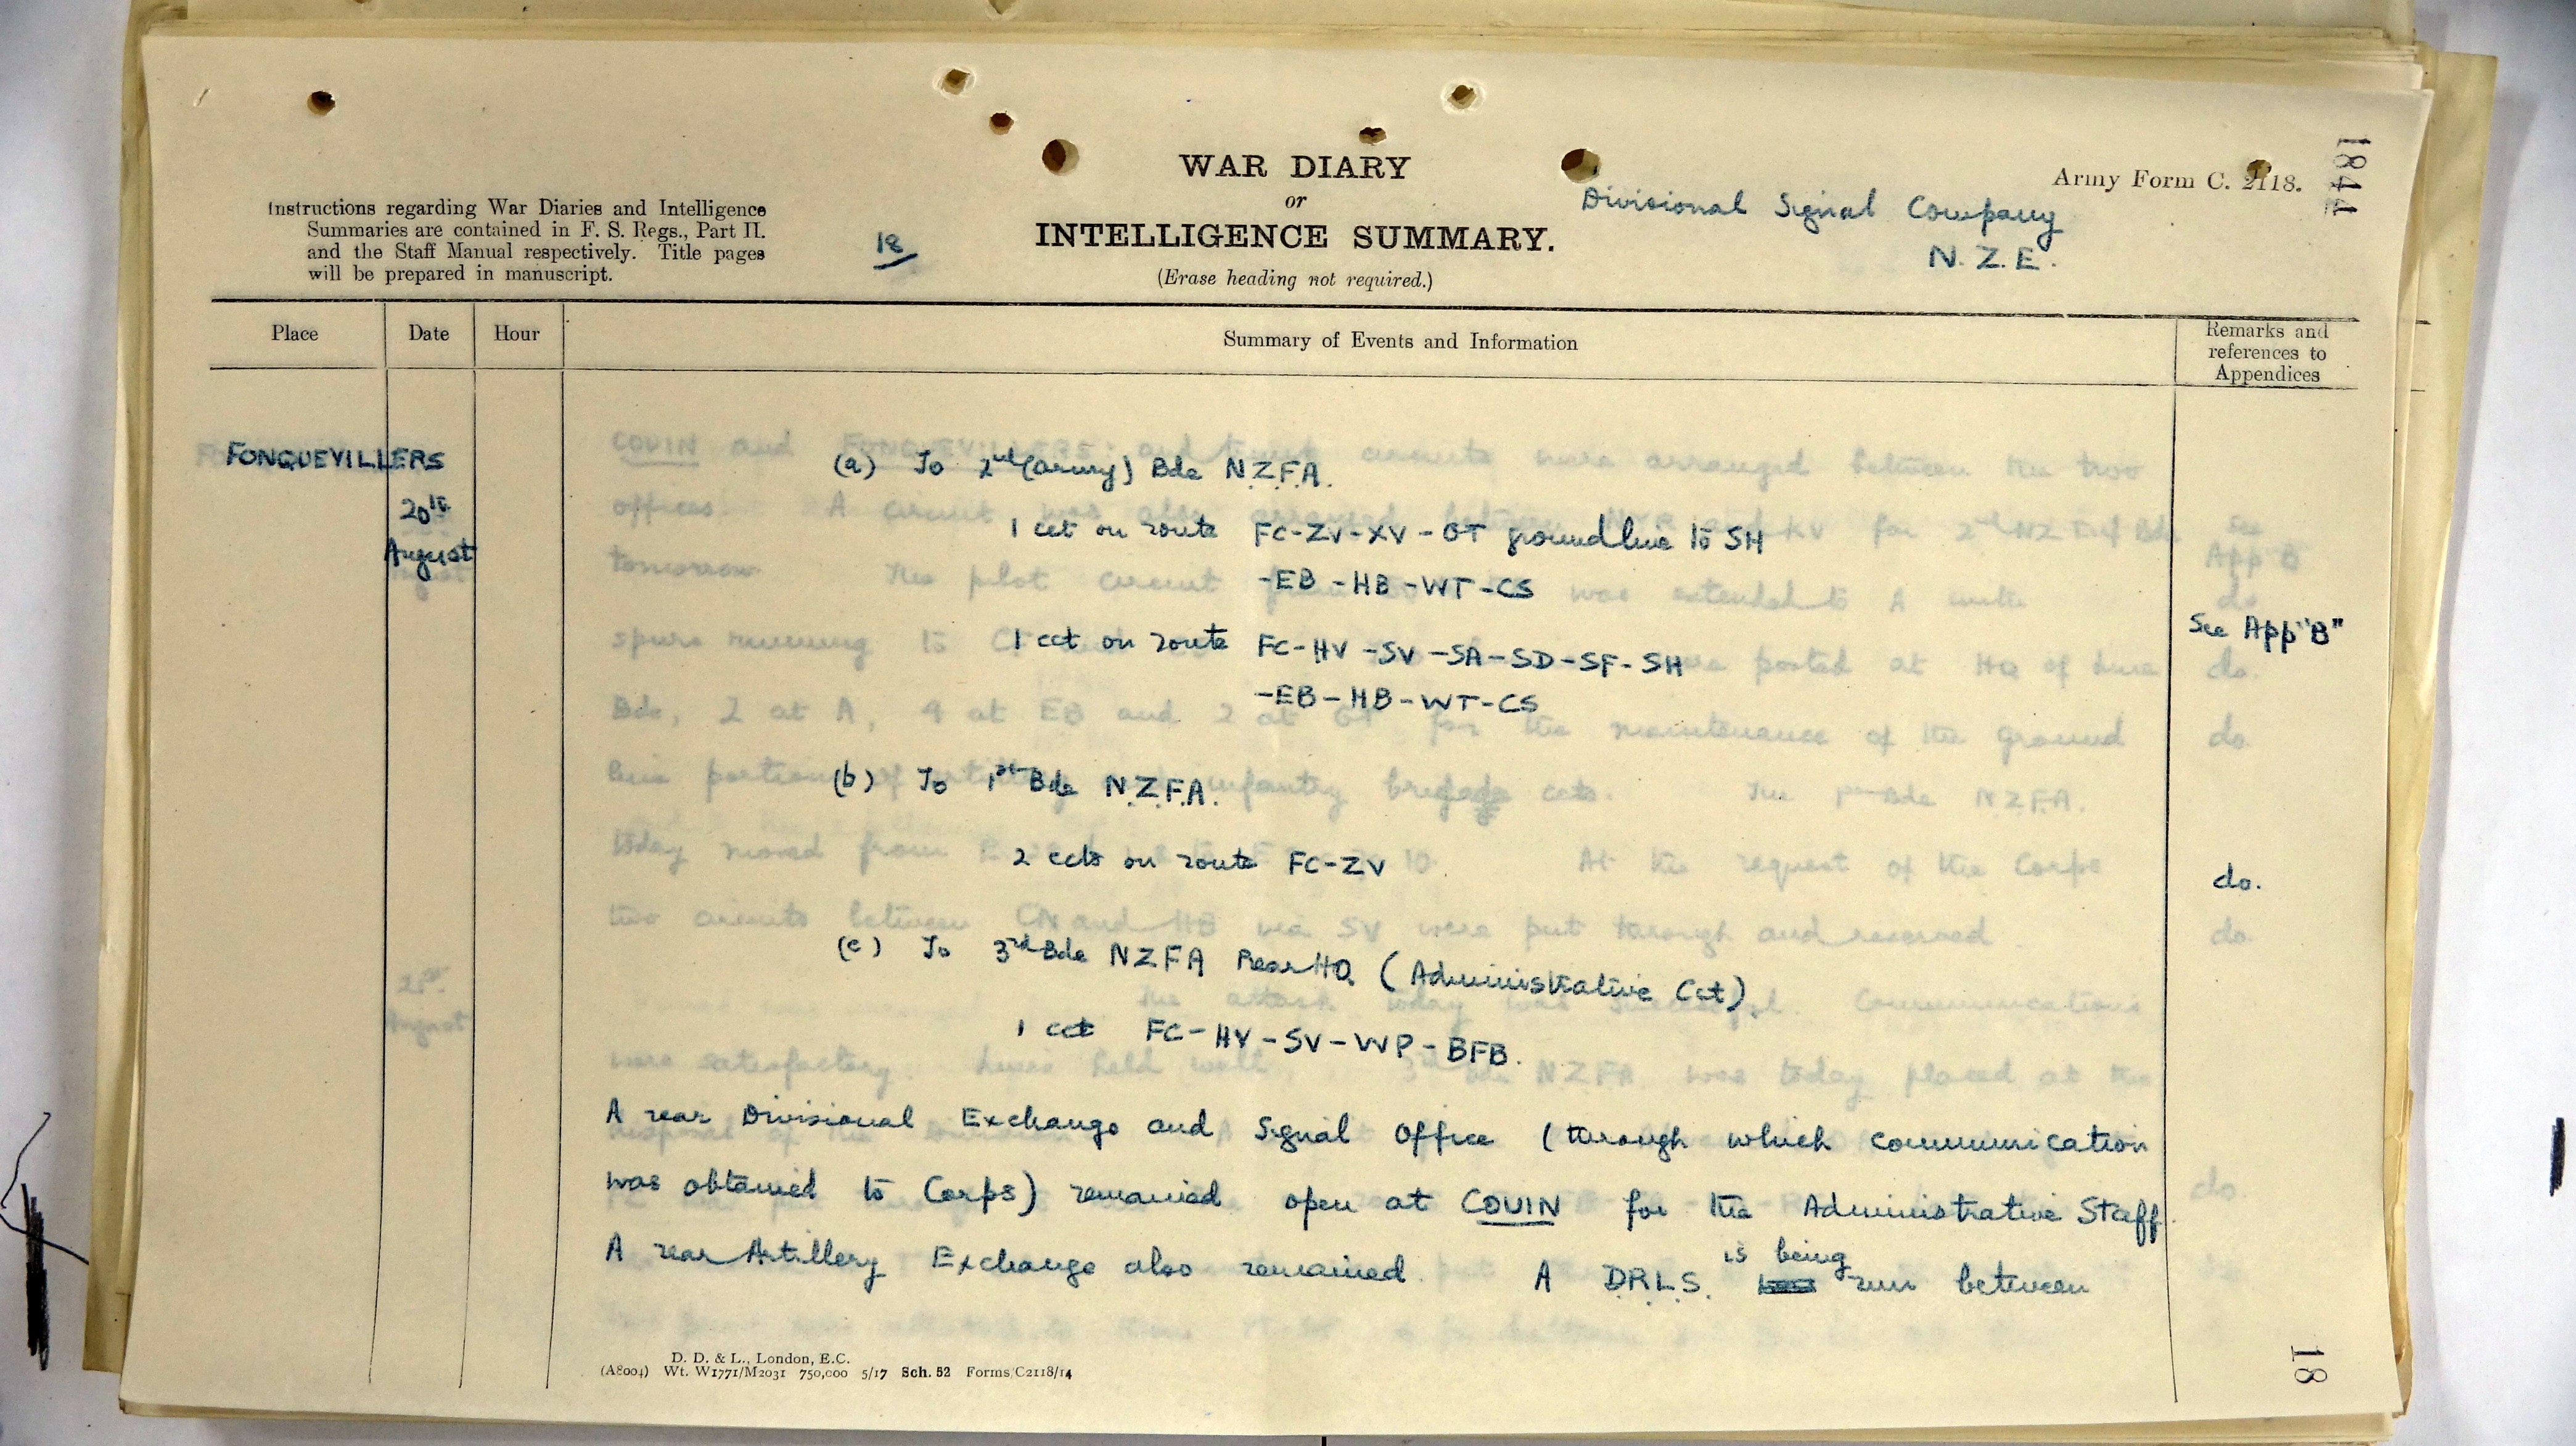 Army Form C. 2118.
WAR DIARY
or
INTELLIGENCE SUMMARY.
(Erase heading not required.)
Instructions regarding War Diaries and Intelligence
Summaries are contained in F. S. Regs., Part II.
and the Staff Manual respectively. Title pages
will be prepared in manuscript.
18
Divisional Signal Company
N.Z.E.
Place
Date
Hour
Summary of Events and Information
Remarks and
references to
Appendices
FONQUEVILLERS
20th
August
(a) To 2nd (army) Bde N.Z.F.A.
1 cct on route FC-ZV-XV-OT groundline to SH
-EB-HB-WT-CS
See App "B"
1 cct on route FC-HV-SV-SA-SD-SF-SH
-EB-HB-WT-CS
(b) To 1st Bde N.Z.F.A.
2 ccts on route FC-ZV
do.
(c) To 3rd Bde NZFA Rear HQ (Administrative Cct)
1 cct FC-HV-SV-WP-BFB.
A rear Divisional Exchange and Signal Office (through which communication
was obtained to Corps) remained open at COUIN for the Administrative Staff.
A rear Artillery Exchange also remained. A D.R.L.S. is being run between
D. D. & L., London, E.C.
(A8004) Wt. W1771/M2031 750,000 5/17 Sch. 52 Forms/C2118/14
18